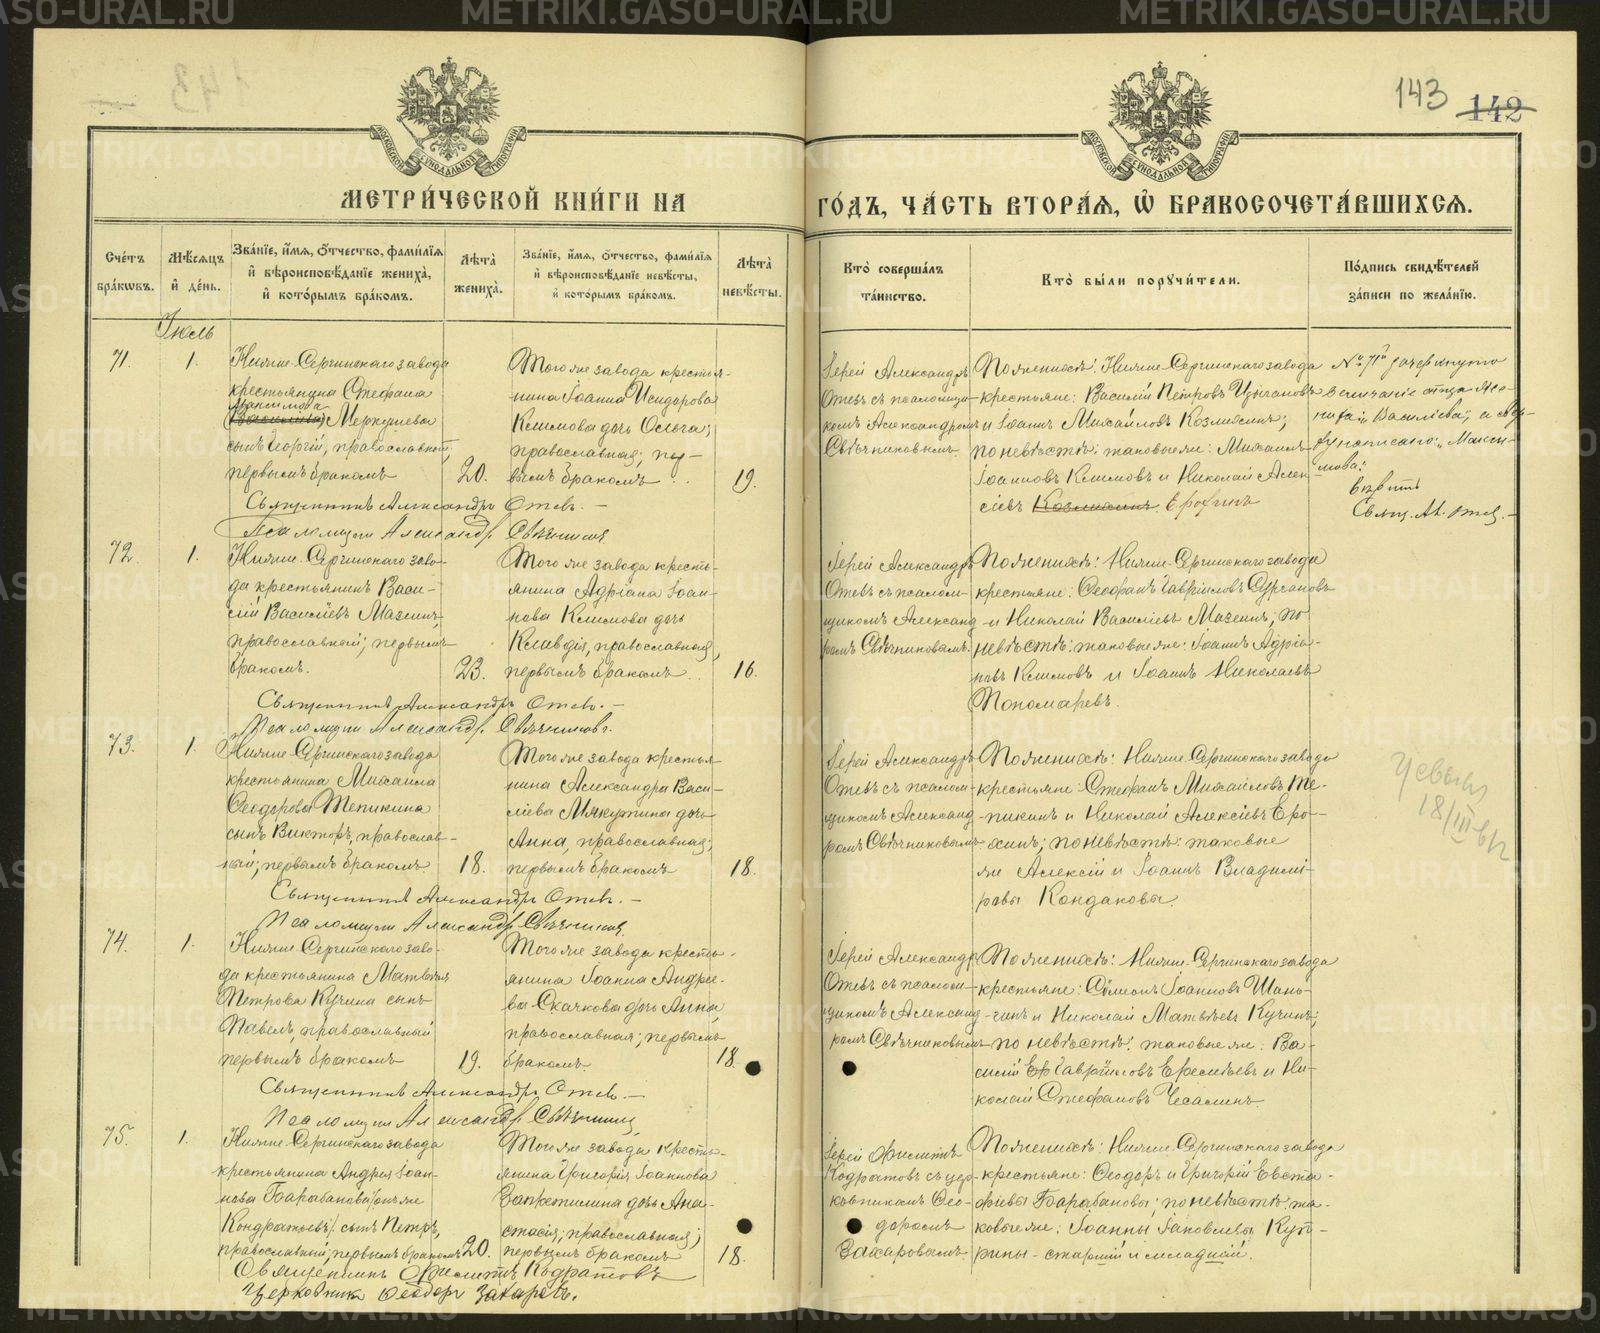 143 142
МЕТРИ́ЧЕСКОЙ КНИ́ГИ НА ГО́ДЪ, ЧА́СТЬ ВТОРА́Я, Ѡ҆ БРАКОСОЧЕТА́ВШИХСЯ.
Сче́тъ бра́кѡвъ.
Мѣ́сяцъ и҆ де́нь.
Зва́нїе, и҆́мя, ѻ҆́тчество, фами́лїя и҆ вѣроисповѣ́данїе жениха̀, и҆ кото́рымъ бра́комъ.
Лѣта̀ жениха̀.
Зва́нїе, и҆́мя, ѻ҆́тчество, фами́лїя и҆ вѣроисповѣ́данїе невѣ́сты, и҆ кото́рымъ бра́комъ.
Лѣта̀ невѣ́сты.
Кто̀ соверша́лъ та́инство.
Кто̀ бы́ли поручи́тели.
По́дпись свидѣ́телей за́писи по жела́нїю.
Іюль
71.
1.
Нижне-Сергинскаго завода
крестьянина Стефана
Максимова
(Васильева) Меркурьева
сынъ Георгій, православный,
первымъ бракомъ
20.
Того же завода крестья-
нина Іоанна Исидорова
Климова дочь Ольга;
православная; пер-
вымъ бракомъ
19.
Іерей Александръ
Отевъ съ псаломщи-
комъ Александромъ
Свѣчниковымъ
По женихѣ: Нижне-Сергинскаго завода
крестьяне: Василій Петровъ Цыгановъ
и Іоаннъ Михайловъ Козминъ;
по невѣстѣ: таковые же: Михаилъ
Іоанновъ Климовъ и Николай Алек-
сіевъ Козминъ. Ерохинъ
№ 71й зачеркнуто
величаніе отца Же-
ниха: „Васильева", а вер-
ху написано: „Макси-
мова".
Вѣрить
Свящ. Ал. Отев. -
Священникъ Александръ Отевъ. -
Псаломщикъ Александръ Свѣчниковъ
72.
1.
Нижне-Сергинскаго заво-
да крестьянинъ Васи-
лій Васильевъ Мазеинъ,
православный; первымъ
бракомъ.
23.
Того же завода кресть-
янина Адріана Іоан-
нова Климова дочь
Клавдія, православная,
первымъ бракомъ
16.
Іерей Александръ
Отевъ съ псалом-
щикомъ Александ-
ромъ Свѣчниковымъ.
По женихѣ: Нижне-Сергинскаго завода
крестьяне: Ѳеофанъ Гавріиловъ Сурсановъ
и Николай Васильевъ Мазеинъ; по
невѣстѣ: таковые же: Іоаннъ Адріа-
новъ Климовъ и Іоаннъ Николаевъ
Пономаревъ.
Священникъ Александръ Отевъ. -
Псаломщикъ Александръ Свѣчниковъ.
73.
1.
Нижне-Сергинскаго завода
крестьянина Михаила
Ѳеодорова Тепикина
сынъ Викторъ, православ-
ный; первымъ бракомъ
18.
Того же завода крестья-
нина Александра Васи-
лева Микутина дочь
Анна, православная;
первымъ бракомъ
18.
Іерей Александръ
Отевъ съ псалом-
щикомъ Александ-
ромъ Свѣчниковымъ
По женихѣ: Нижне-Сергинскаго завода
крестьяне: Стефанъ Михайловъ Те-
пикинъ и Николай Алексіевъ Еро-
хинъ; по невѣстѣ: таковые
же Алексій и Іоаннъ Владимі-
ровы Кондаковы.
18/III
Священникъ Александръ Отевъ. -
Псаломщикъ Александръ Свѣчниковъ.
74.
1.
Нижне-Сергинскаго заво-
да крестьянина Матвѣя
Петрова Кучина сынъ
Павелъ, православный
первымъ бракомъ
19.
Того же завода кресть-
янина Іоанна Андре-
ева Скачкова дочь Анна,
православная; первымъ
бракомъ.
18.
Іерей Александръ
Отевъ съ псалом-
щикомъ Александ-
ромъ Свѣчниковымъ
По женихѣ: Нижне-Сергинскаго завода
крестьяне: Сѵмеонъ Іоанновъ Шань-
гинъ и Николай Матвѣевъ Кучинъ;
по невѣстѣ: таковые же: Ва-
силій Гавріиловъ Ерелѣевъ и Ни-
колай Стефановъ Чесалинъ.
Священникъ Александръ Отевъ. -
Псаломщикъ Александръ Свѣчниковъ
75.
1.
Нижне-Сергинскаго завода
крестьянина Андрея Іоан-
нова Барабанова (онъ же
Кондратьевъ) сынъ Петръ,
православный; первымъ бракомъ
20.
Того же завода кресть-
янина Григорія Іоаннова
дочь Ана-
стасія; православная;
первымъ бракомъ
18.
Іерей Филиппъ
Кодратовъ съ цер-
ковникомъ Ѳео-
доромъ
Захаровымъ
По женихѣ: Нижне-Сергинскаго завода
крестьяне: Ѳеодоръ и Григорій Евста-
фіевы Барабановы; по невѣстѣ: та-
ковые же: Іоанны Іаковлевы Куп-
рины - старшій и младшій.
Священникъ Филиппъ Кодратовъ
Церковникъ Ѳеодоръ Захаровъ.